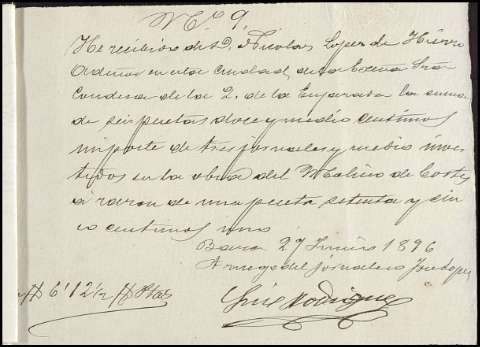 Nº 9.
He recibido de D. Nicolas Lopez de Hierro
Admor en esta Ciudad, de la Excma Sra
Condesa de la Q. de la Enjarada la suma
de seis pesetas doce y medio centimos
importe de tres jornales y medio inver
tidos en la obra del Molino de Cortes
á razon de una peseta setenta y cin
co centimos uno
Baza 27 Junio 1896
A ruego del jornalero Jose Lopez
José Rodriguez
6'12½ Ptas